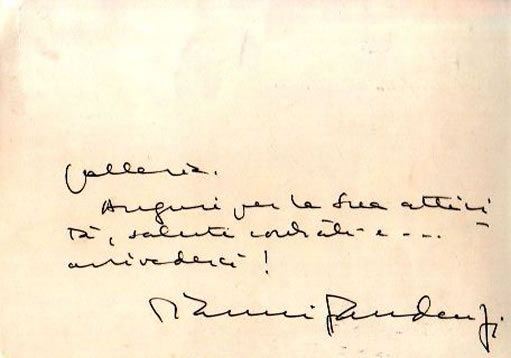 galleria.
Auguri per la Sua attivi
tà, saluti cordiali e ....
arrivederci!
Gianni Gaudenzi